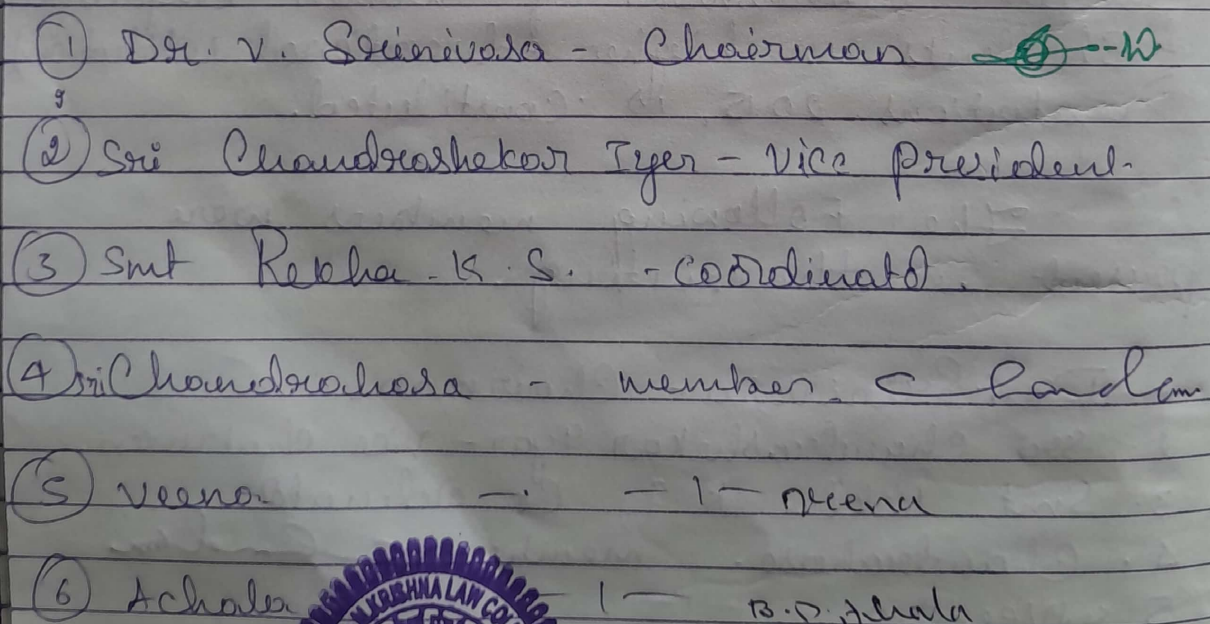 ① Dr. V. Srinivasa - Chairman
② Sri Chandrashekar Iyer - Vice President.
③ Smt Rekha.K.S. - Coordinator.
④ Sri Chandrahasa - member.
⑤ Veena - - 1 - Veena
⑥ Achala - 1 - B.P. Achala
KRISHNA LAW CO